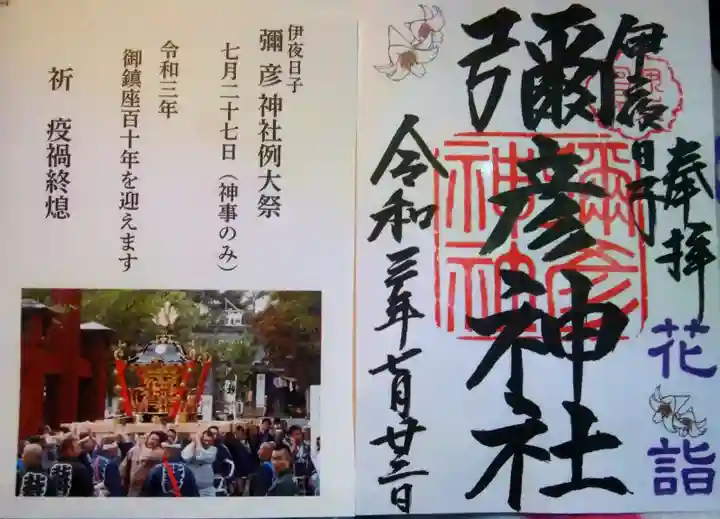 伊夜日子
彌彦神社例大祭
七月二十七日(神事のみ)
令和三年
御鎮座百十年を迎えます
祈 疫禍終熄
奉拝
伊夜日子
彌彦神社
令和三年七月廿三日
彌彦
神社
花詣